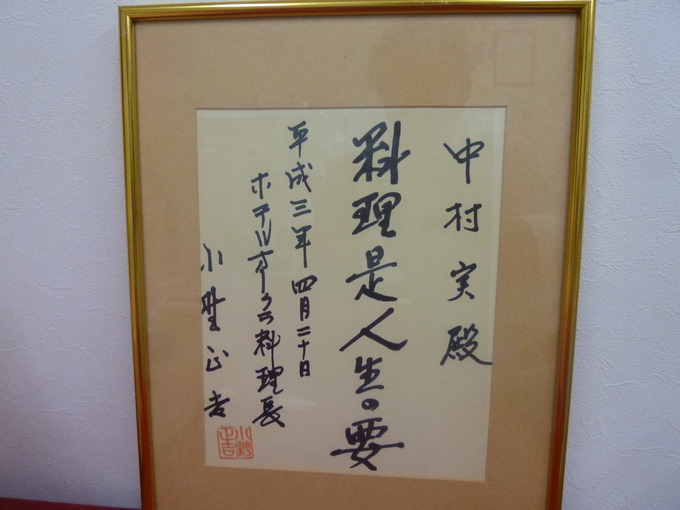 中村実殿
料理是人生の要
平成三年四月二十日
ホテルオークラ料理長
小野正吉
小野正吉